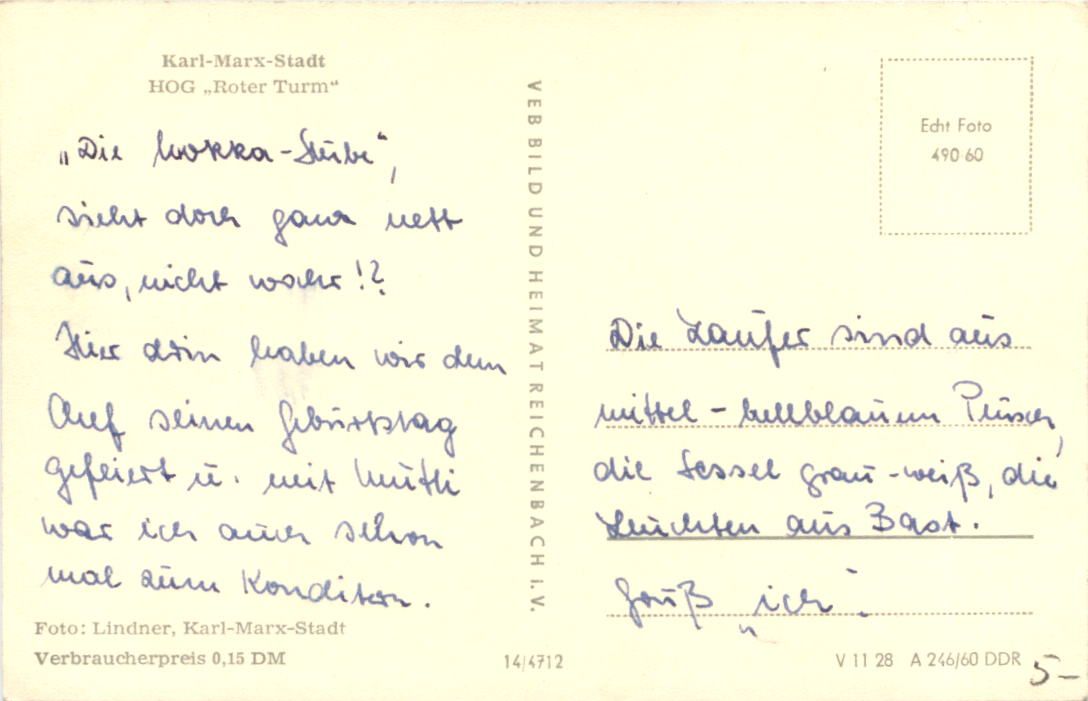 Karl-Marx-Stadt
HOG „Roter Turm“
„Die Mokka-Stube“,
sieht doch ganz nett
aus, nicht wahr!?
Hier drin haben wir dem
Chef seinen Geburtstag
gefeiert u. mit Mutti
war ich auch schon
mal zum Konditern.
Foto: Lindner, Karl-Marx-Stadt
Verbraucherpreis 0,15 DM
VEB BILD UND HEIMAT REICHENBACH i. V.
14/4712
Echt Foto
490 60
Die Läufer sind aus
mittel-hellblauem Plüsch,
die Sessel grau-weiß, die
Leuchten aus Bast.
Gruß „ich“.
V 11 28 A 246/60 DDR
5-